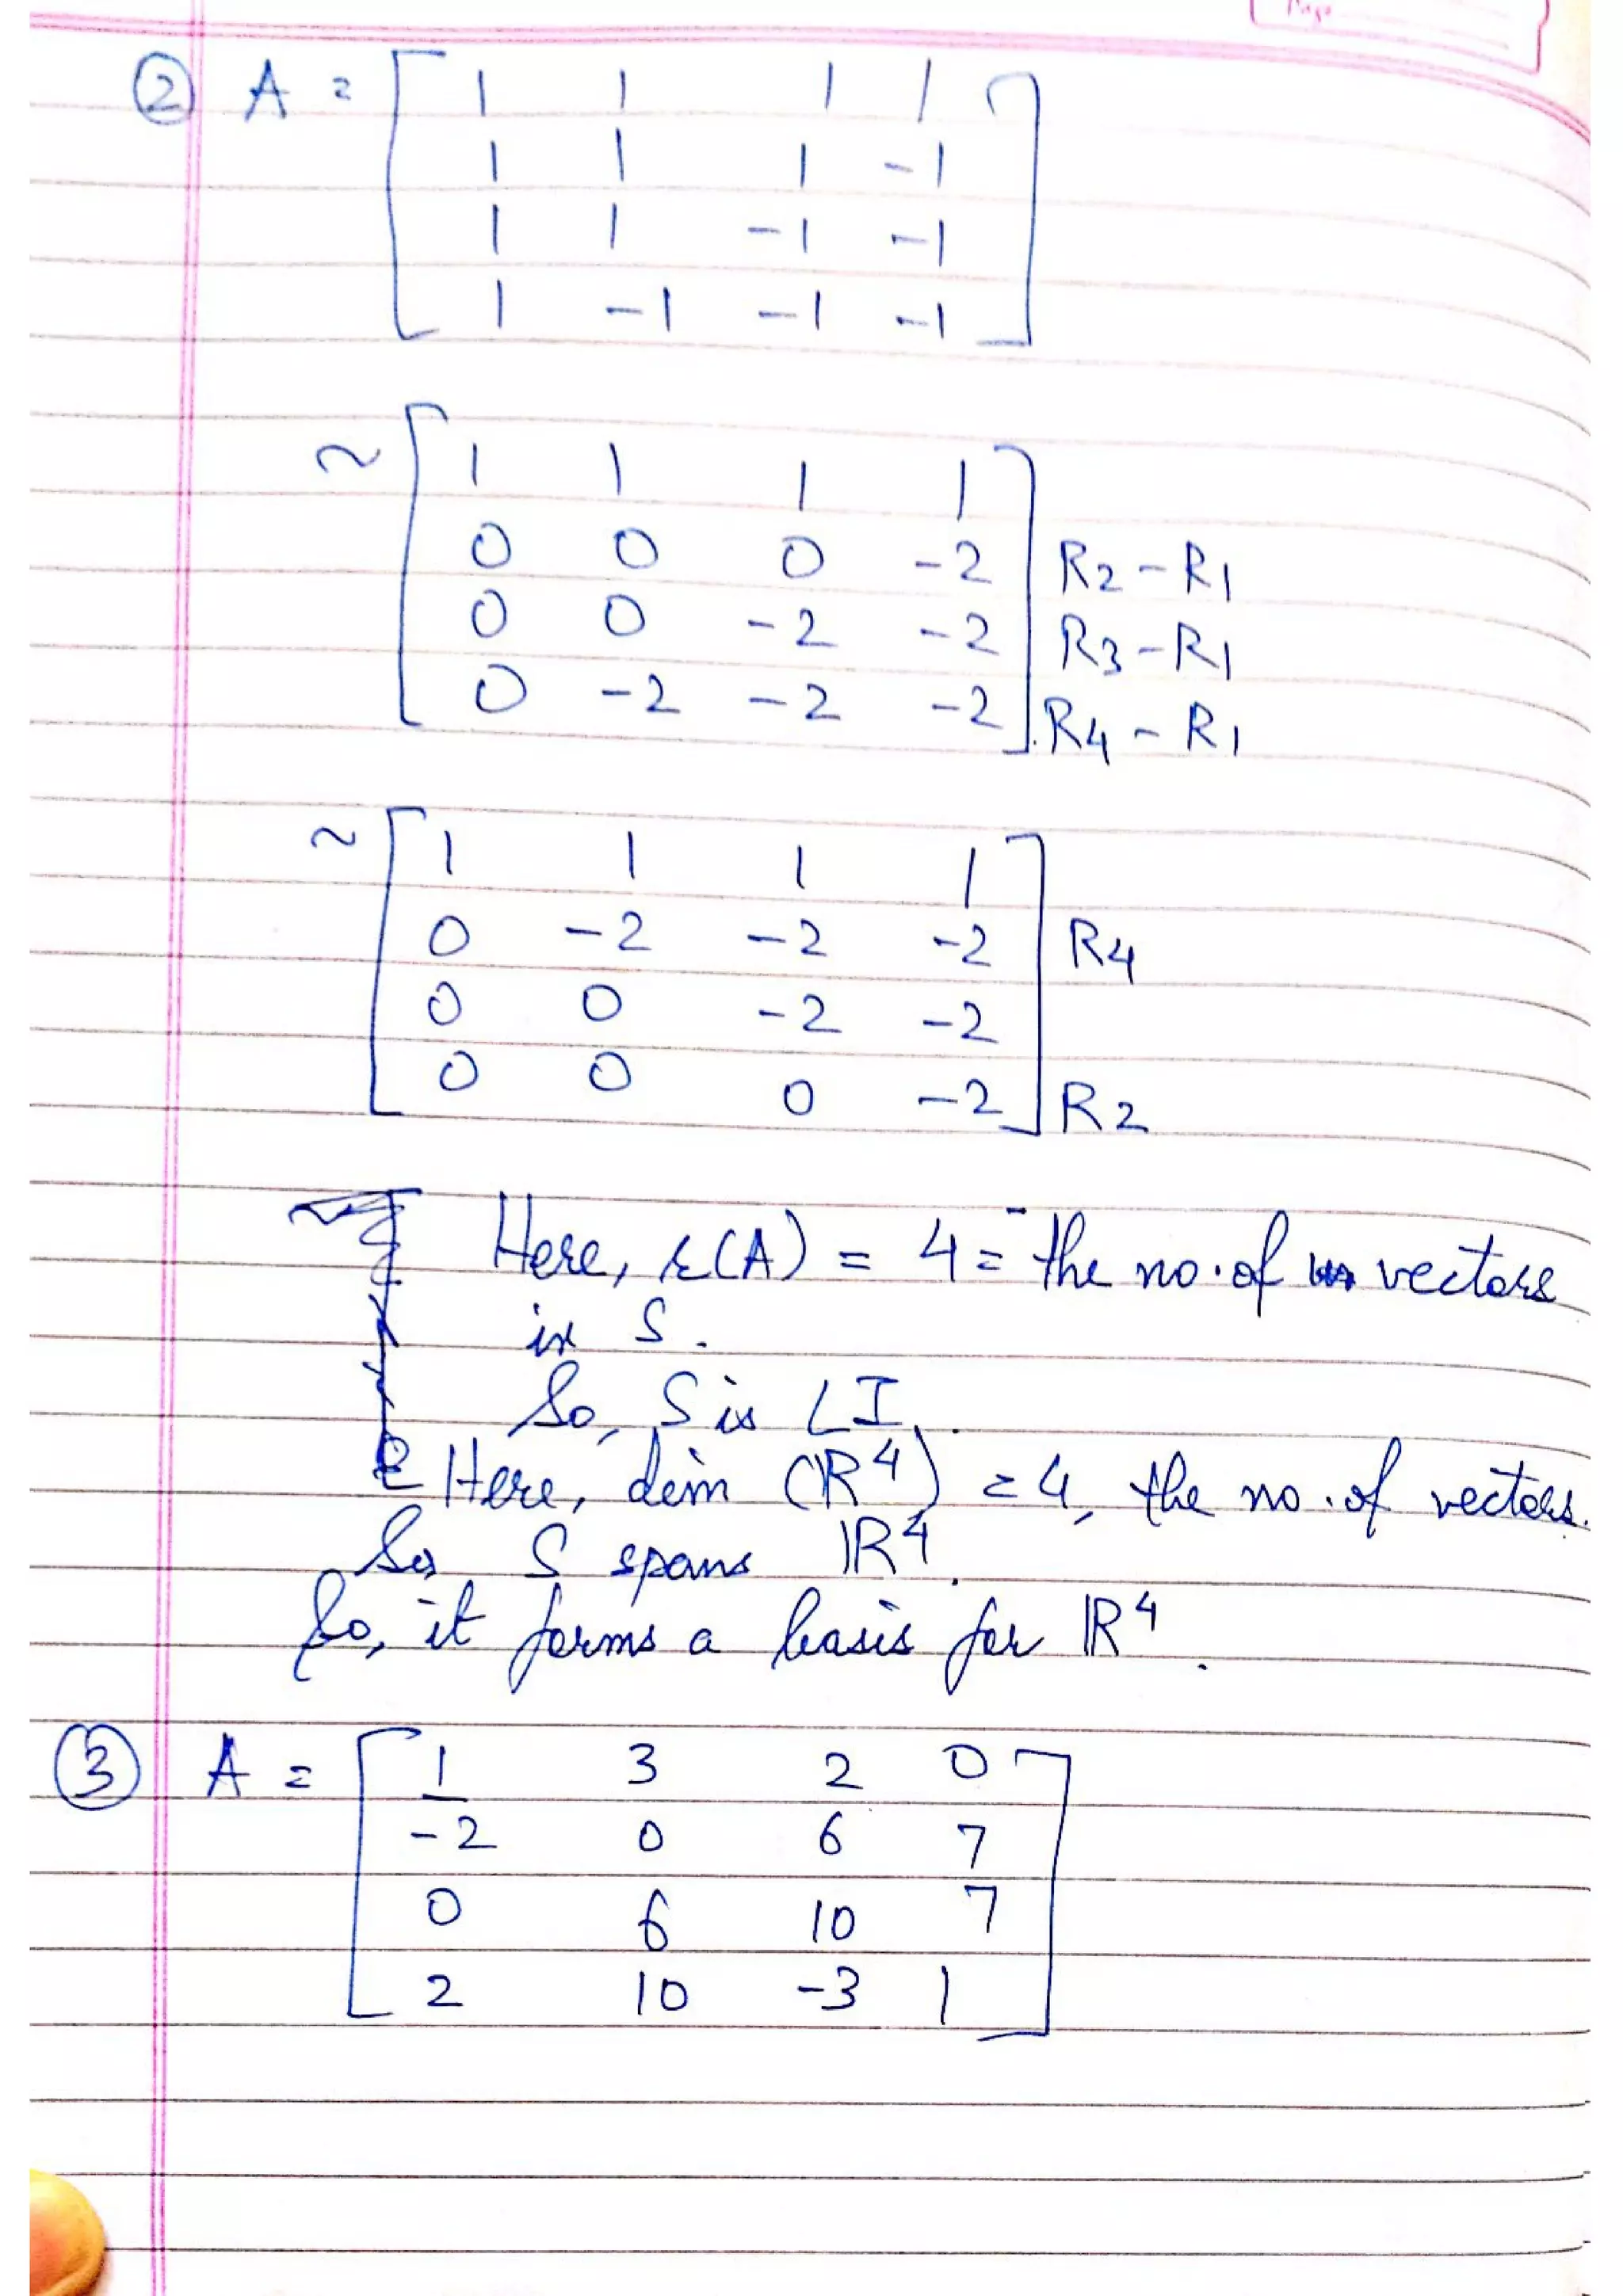 Page
② A = [ 1 1 1 1
1 1 1 -1
1 1 -1 -1
1 -1 -1 -1 ]
~ [ 1 1 1 1
0 0 0 -2 R2-R1
0 0 -2 -2 R3-R1
0 -2 -2 -2 ] R4-R1
~ [ 1 1 1 1
0 -2 -2 -2 R4
0 0 -2 -2
0 0 0 -2 ] R2
Here, r(A) = 4 = the no. of vectors
in S.
So, S is LI.
Here, dim (R⁴) = 4, the no. of vectors.
So, S spans ℝ⁴.
So, it forms a basis for ℝ⁴.
③ A = [ 1 3 2 0
-2 0 6 7
0 6 10 7
2 10 -3 1 ]